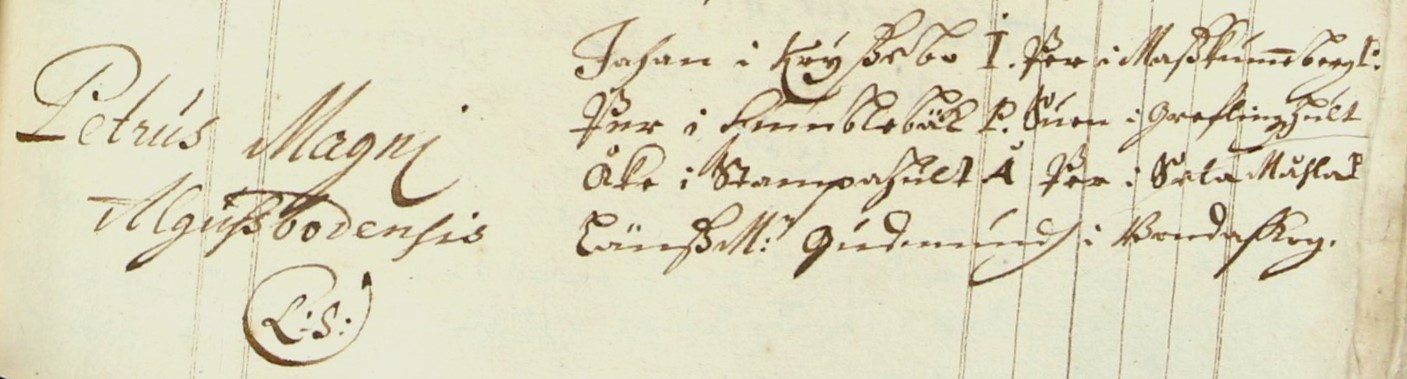 Petrus Magni
Algutzbodensis
L: S:
Johan i Krysebo I. Per i Maßkumebergh:
Per i Humblebäk P. Suen i Greflingzhult
Åke i Stampahult Å Per i
Länß M: Gudmundh i Bondaskog.